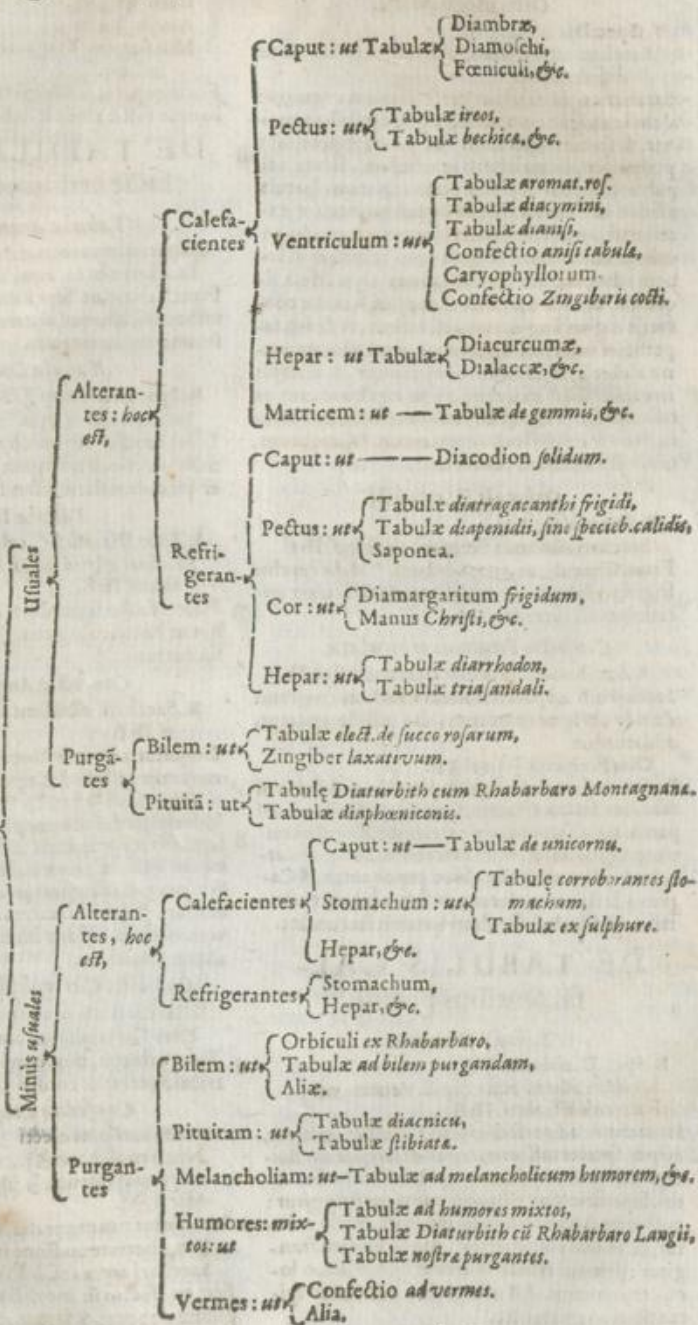 Usuales
Alteran-
tes: hoc
est,
Calefa-
cientes
Caput: ut Tabulæ
Diambræ,
Diamoschi,
Fœniculi, &c.
Pectus: ut
Tabulæ ireos,
Tabulæ bechicæ, &c.
Ventriculum: ut
Tabulæ aromat. ros.
Tabulæ diacymini,
Tabulæ dianisi,
Confectio anisi tabulæ,
Caryophyllorum.
Confectio Zingiberis cocti.
Hepar: ut Tabulæ
Diacurcumæ,
Dialaccæ, &c.
Matricem: ut — Tabulæ de gemmis, &c.
Refri-
geran-
tes
Caput: ut — Diacodion solidum.
Pectus: ut
Tabulæ diatragacanthi frigidi,
Tabulæ diapenidii, sine specieb. calidis,
Saponea.
Cor: ut
Diamargaritum frigidum,
Manus Christi, &c.
Hepar: ut
Tabulæ diarrhodon,
Tabulæ triasandali.
Purgã-
tes
Bilem: ut
Tabulæ elect. de succo rosarum,
Zingiber laxativum.
Pituitã: ut
Tabulę Diaturbith cum Rhabarbaro Montagnanæ.
Tabulæ diaphœniconis.
Minùs usuales
Alteran-
tes, hoc
est,
Calefacientes
Caput: ut — Tabulæ de unicornu.
Stomachum: ut
Tabulę corroborantes sto-
machum,
Tabulæ ex sulphure.
Hepar, &c.
Refrigerantes
Stomachum,
Hepar, &c.
Purgan-
tes
Bilem: ut
Orbiculi ex Rhabarbaro,
Tabulæ ad bilem purgandam,
Aliæ.
Pituitam: ut
Tabulæ diacnicu,
Tabulæ stibiatæ.
Melancholiam: ut – Tabulæ ad melancholicum humorem, &c.
Humores: mix-
tos: ut
Tabulæ ad humores mixtos,
Tabulæ Diaturbith cũ Rhabarbaro Langii,
Tabulæ nostræ purgantes.
Vermes: ut
Confectio ad vermes.
Alia.